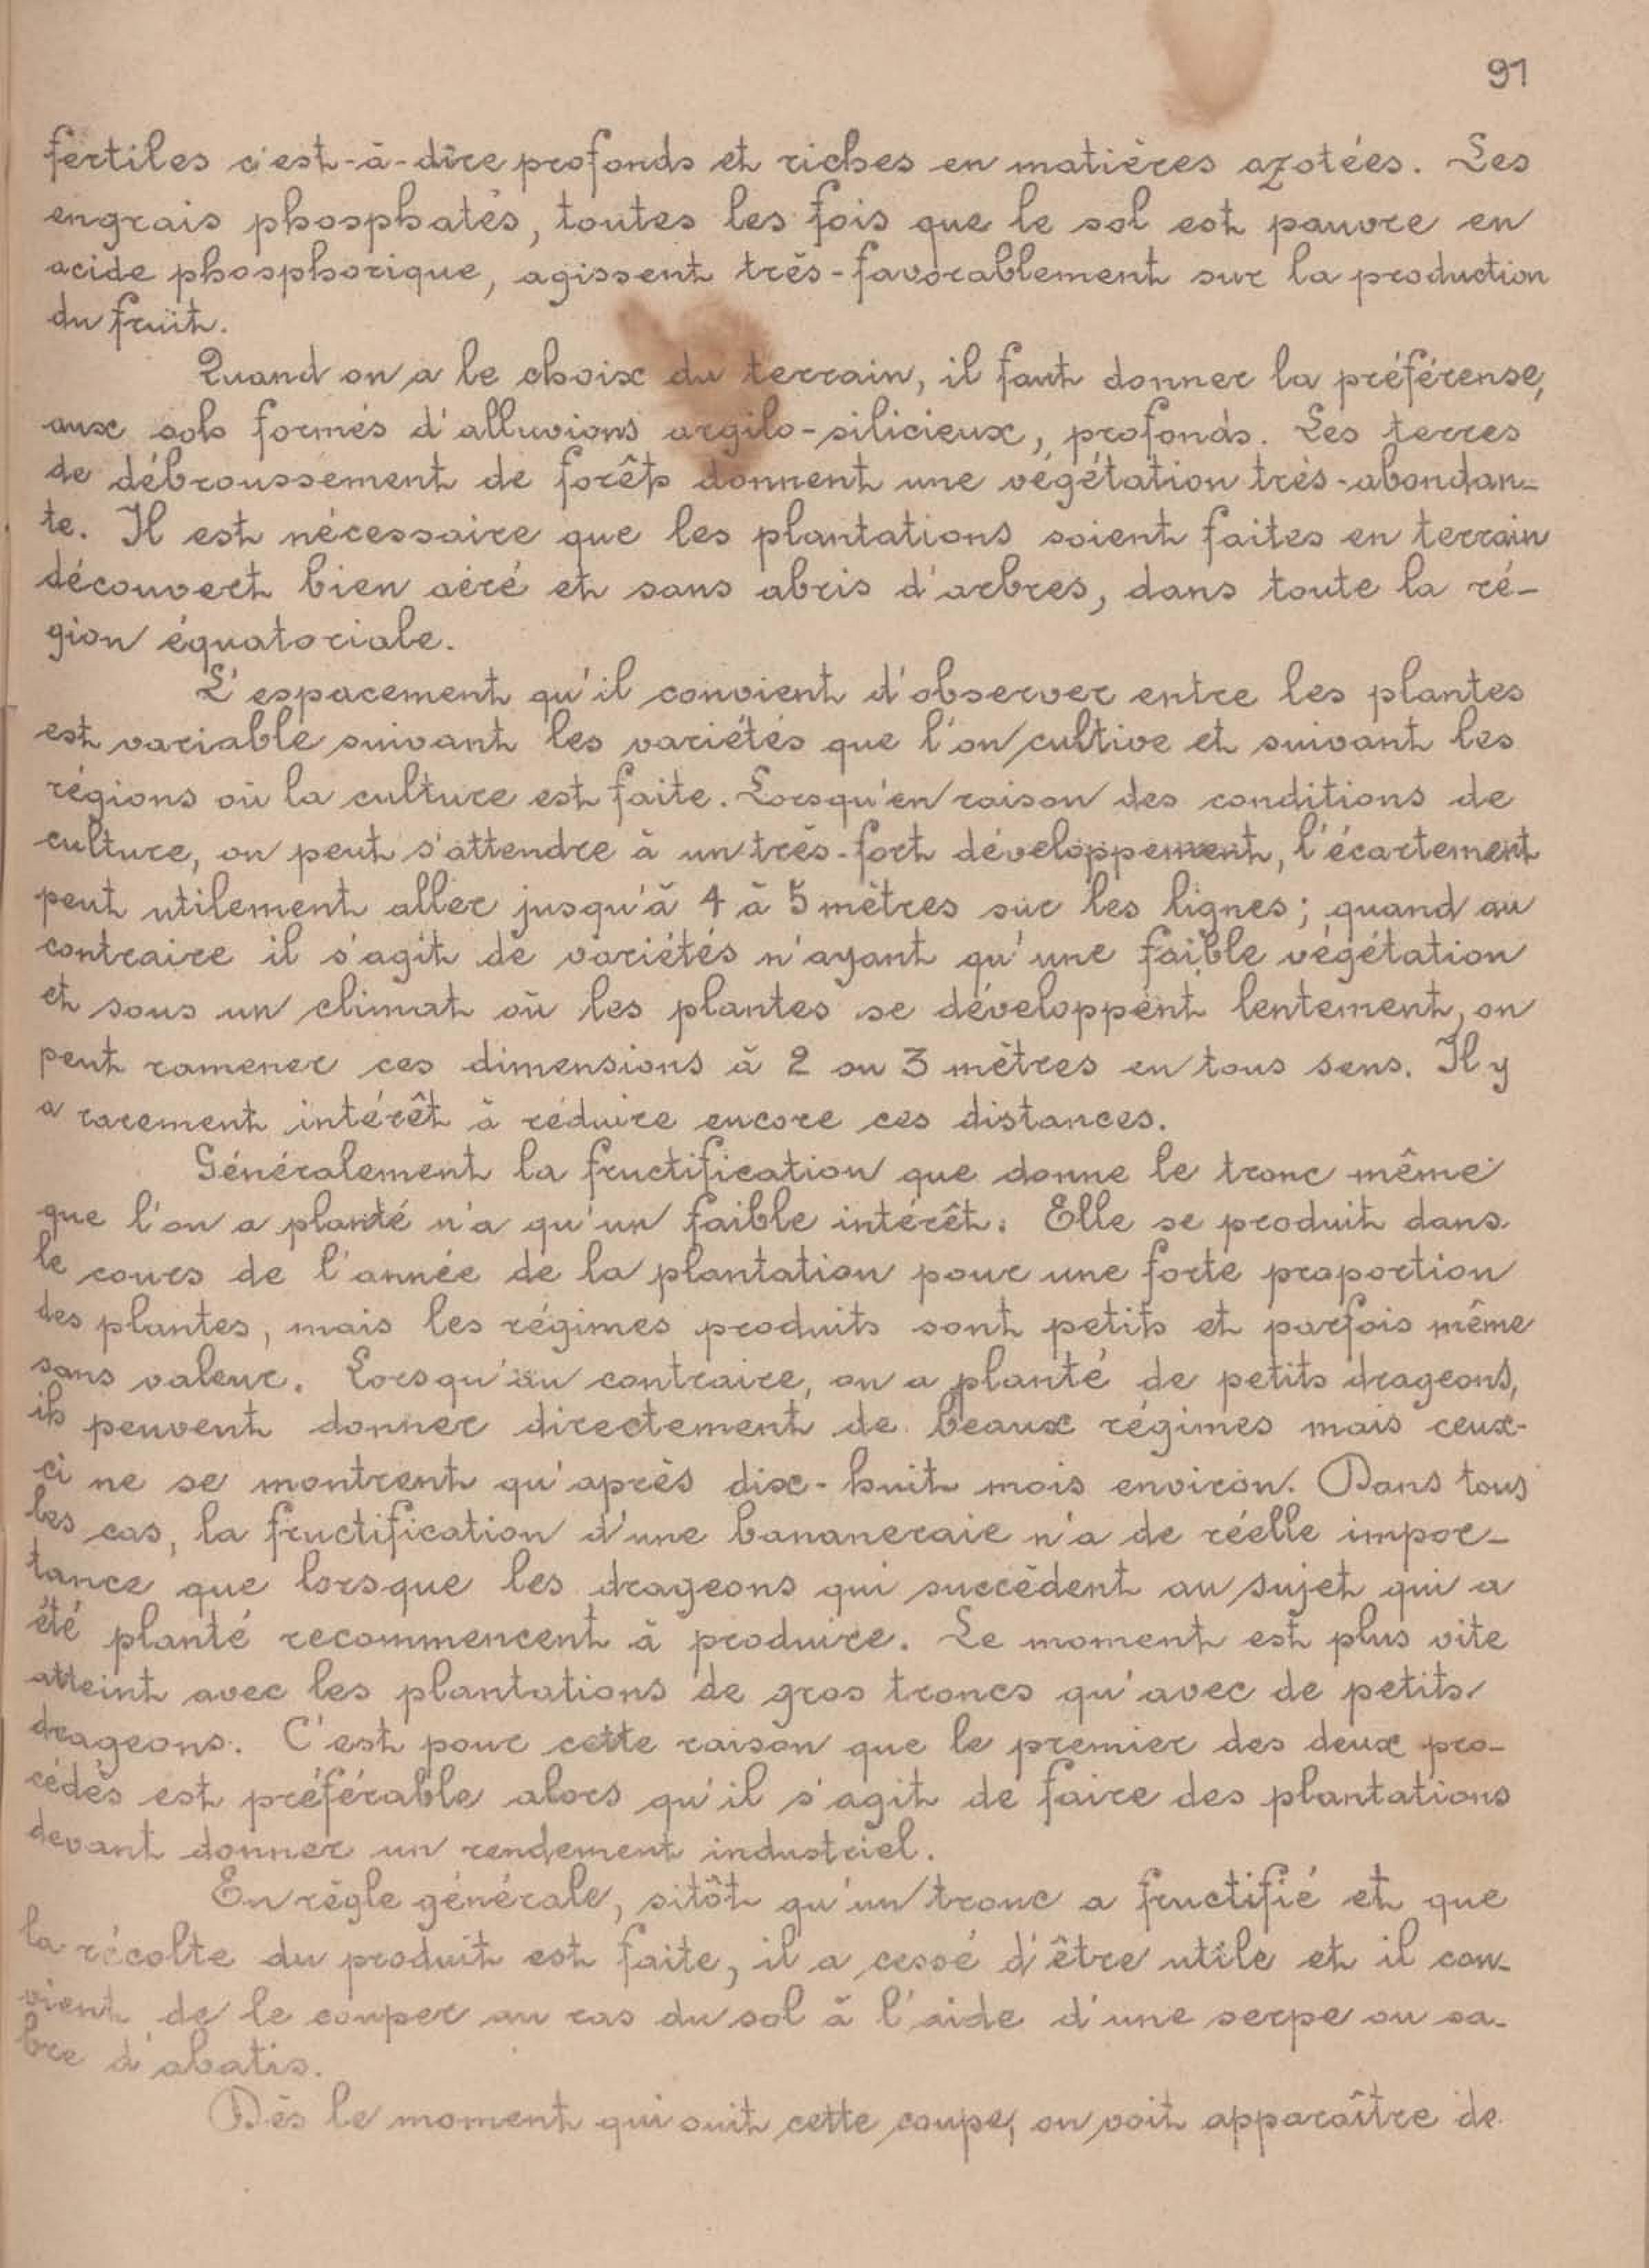 91
fertiles c'est-à-dire profonds et riches en matières azotées. Les
engrais phosphatés, toutes les fois que le sol est pauvre en
acide phosphorique, agissent très-favorablement sur la production
du fruit.
Quand on a le choix du terrain, il faut donner la préférense,
aux sols formés d'alluvions argilo-silicieux, profonds. Les terres
de débroussement de forêts donnent une végétation très-abondan-
te. Il est nécessaire que les plantations soient faites en terrain
découvert bien aéré et sans abris d'arbres, dans toute la ré-
gion équatoriale.
L'espacement qu'il convient d'observer entre les plantes
est variable suivant les variétés que l'on cultive et suivant les
régions où la culture est faite. Lorsqu'en raison des conditions de
culture, on peut s'attendre à un très-fort développement, l'écartement
peut utilement aller jusqu'à 4 à 5 mètres sur les lignes; quand au
contraire il s'agit de variétés n'ayant qu'une faible végétation
et sous un climat où les plantes se développent lentement, on
peut ramener ces dimensions à 2 ou 3 mètres en tous sens. Il y
a rarement intérêt à réduire encore ces distances.
Généralement la fructification que donne le tronc même
que l'on a planté n'a qu'un faible intérêt. Elle se produit dans
le cours de l'année de la plantation pour une forte proportion
des plantes, mais les régimes produits sont petits et parfois même
sans valeur. Lorsqu'au contraire, on a planté de petits drageons,
ils peuvent donner directement de beaux régimes mais ceux-
ci ne se montrent qu'après dix-huit mois environ. Dans tous
les cas, la fructification d'une bananeraie n'a de réelle impor-
tance que lorsque les drageons qui succèdent au sujet qui a
été planté recommencent à produire. Le moment est plus vite
atteint avec les plantations de gros troncs qu'avec de petits
drageons. C'est pour cette raison que le premier des deux pro-
cédés est préférable alors qu'il s'agit de faire des plantations
devant donner un rendement industriel.
En règle générale, sitôt qu'un tronc a fructifié et que
la récolte du produit est faite, il a cessé d'être utile et il con-
vient de le couper au ras du sol à l'aide d'une serpe ou sa-
bre d'abatis.
Dès le moment qui suit cette coupe, on voit apparaître de